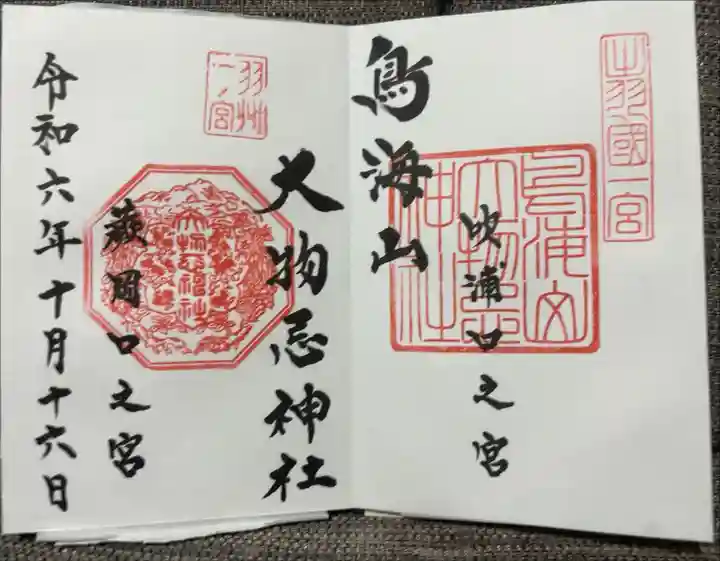 出羽國一宮
鳥海山
鳥海山大物忌神社
吹浦口之宮
羽州一ノ宮
大物忌神社
大物忌神社
蕨岡口之宮
令和六年十月十六日